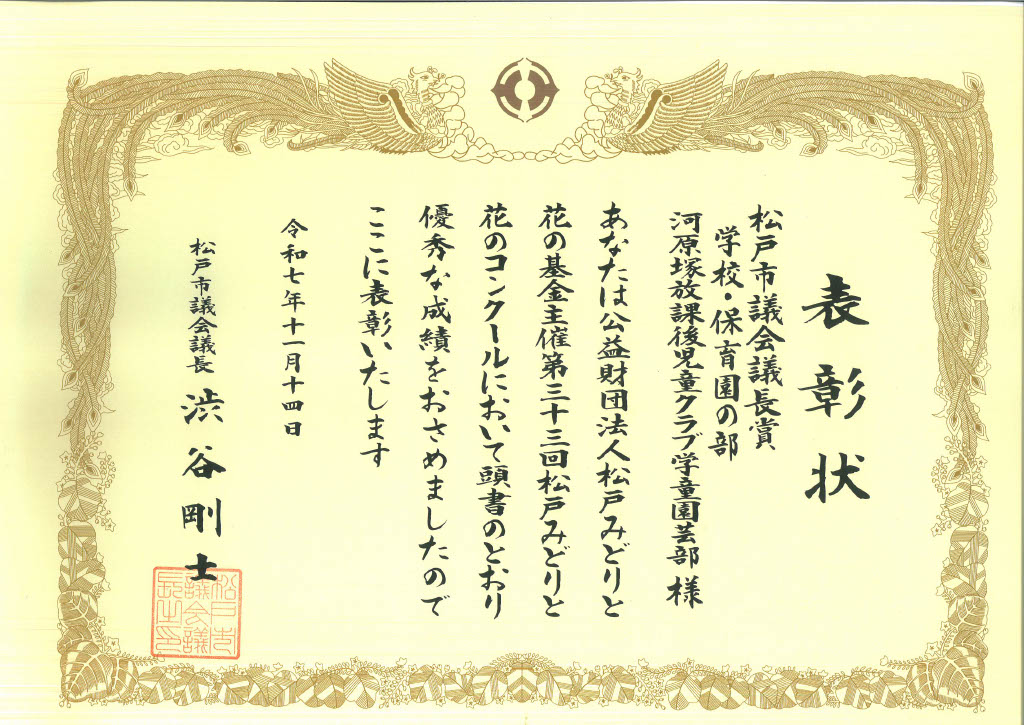 表彰状
松戸市議会議長賞
学校・保育園の部
河原塚放課後児童クラブ学童園芸部 様
あなたは公益財団法人松戸みどりと
花の基金主催第三十三回松戸みどりと
花のコンクールにおいて頭書のとおり
優秀な成績をおさめましたので
ここに表彰いたします
令和七年十一月十四日
松戸市議会議長 渋谷剛士
松戸市
議会議
長之印